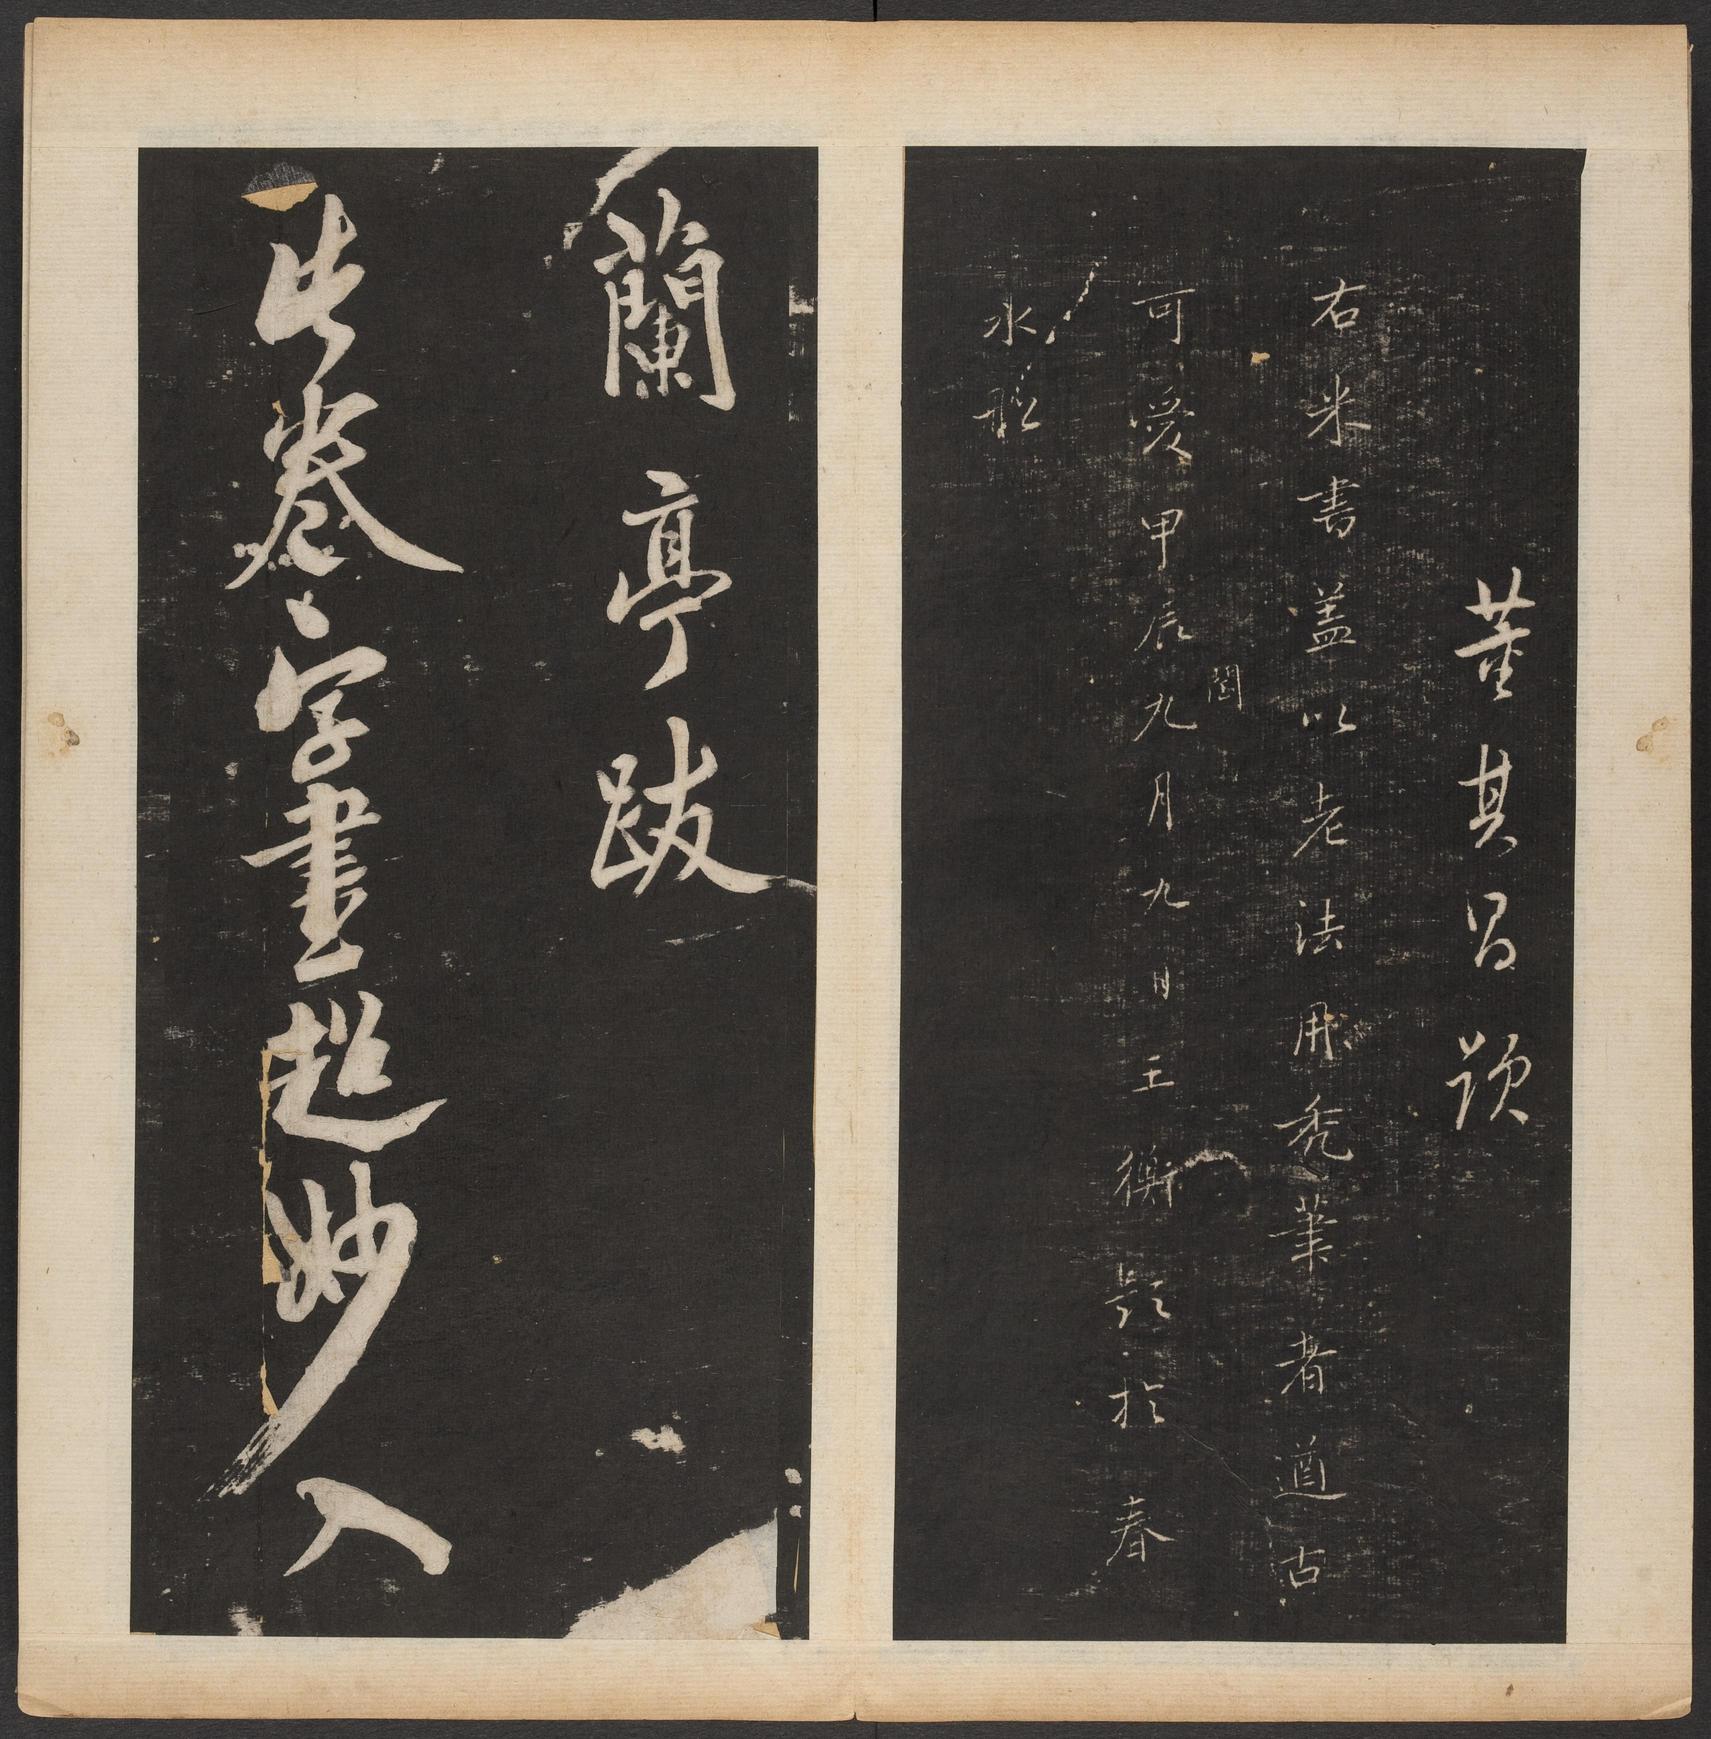 董其昌題
右米書蓋以老法用禿筆者遒古
可愛甲辰閏九月九日王衡題於春
水船
蘭亭跋
此卷字書超妙入